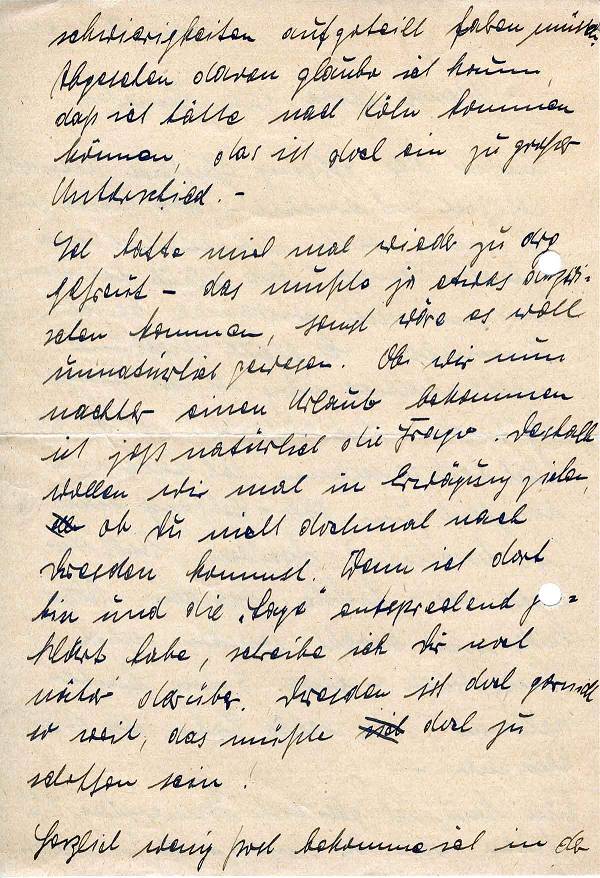 schwierigkeiten aufgeteilt haben müßte.
Abgesehen davon glaube ich kaum,
daß ich hätte nach Köln kommen
können, das ist doch ein zu großer
Unterschied. -
Ich hatte mich mal wieder zu
gefreut - das mußte ja etwas dazwi-
schen kommen, sonst wäre es wohl
unnatürlich gewesen. Ob wir nun
nachher einen Urlaub bekommen
ist jetzt natürlich die Frage. Deshalb
wollen wir mal in Erwägung ziehen,
ob Du nicht doch mal nach
Dresden kommst. Wenn ich dort
bin und die „Lage" entsprechend ge-
klärt habe, schreibe ich Dir noch
näher darüber. Dresden ist doch garnicht
so weit, das müßte doch zu
schaffen sein!
Herzlich wenig Post bekomme ich in der